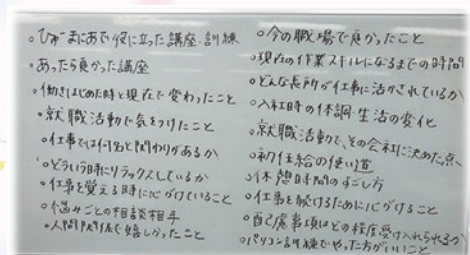 。ひゅーまにあで役に立った講座・訓練
。あったら良かった講座
。働きはじめた時と現在で変わったこと
。就職活動で気をつけたこと
。仕事では何名と関わりがあるか
。どういう時にリラックスしているか
。仕事を覚える時に心がけていること
。悩みごとの相談相手
。人間関係で嬉しかったこと
。今の職場で良かったこと
。現在の作業スキルになるまでの時間
。どんな長所が仕事に活かされているか
。入社時の体調・生活の変化
。就職活動で、その会社に決めた点
。初任給の使い道
。休憩時間のすごし方
。仕事を続けるために心がけること
。自己慮事項はどの程度受け入れられるか
。パソコン訓練でやった方がいいこと